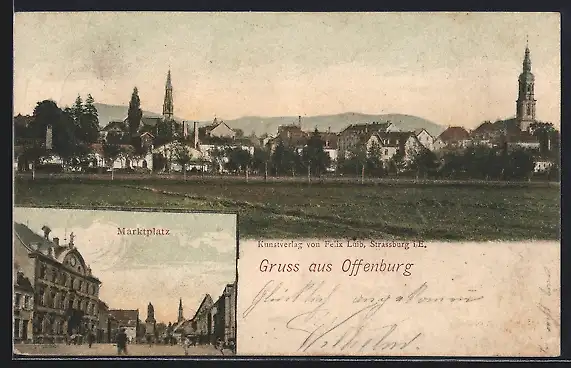 Marktplatz
Kunstverlag von Felix Luib, Strassburg i.E.
Gruss aus Offenburg
Glücklich angekommen
Wilhelm.